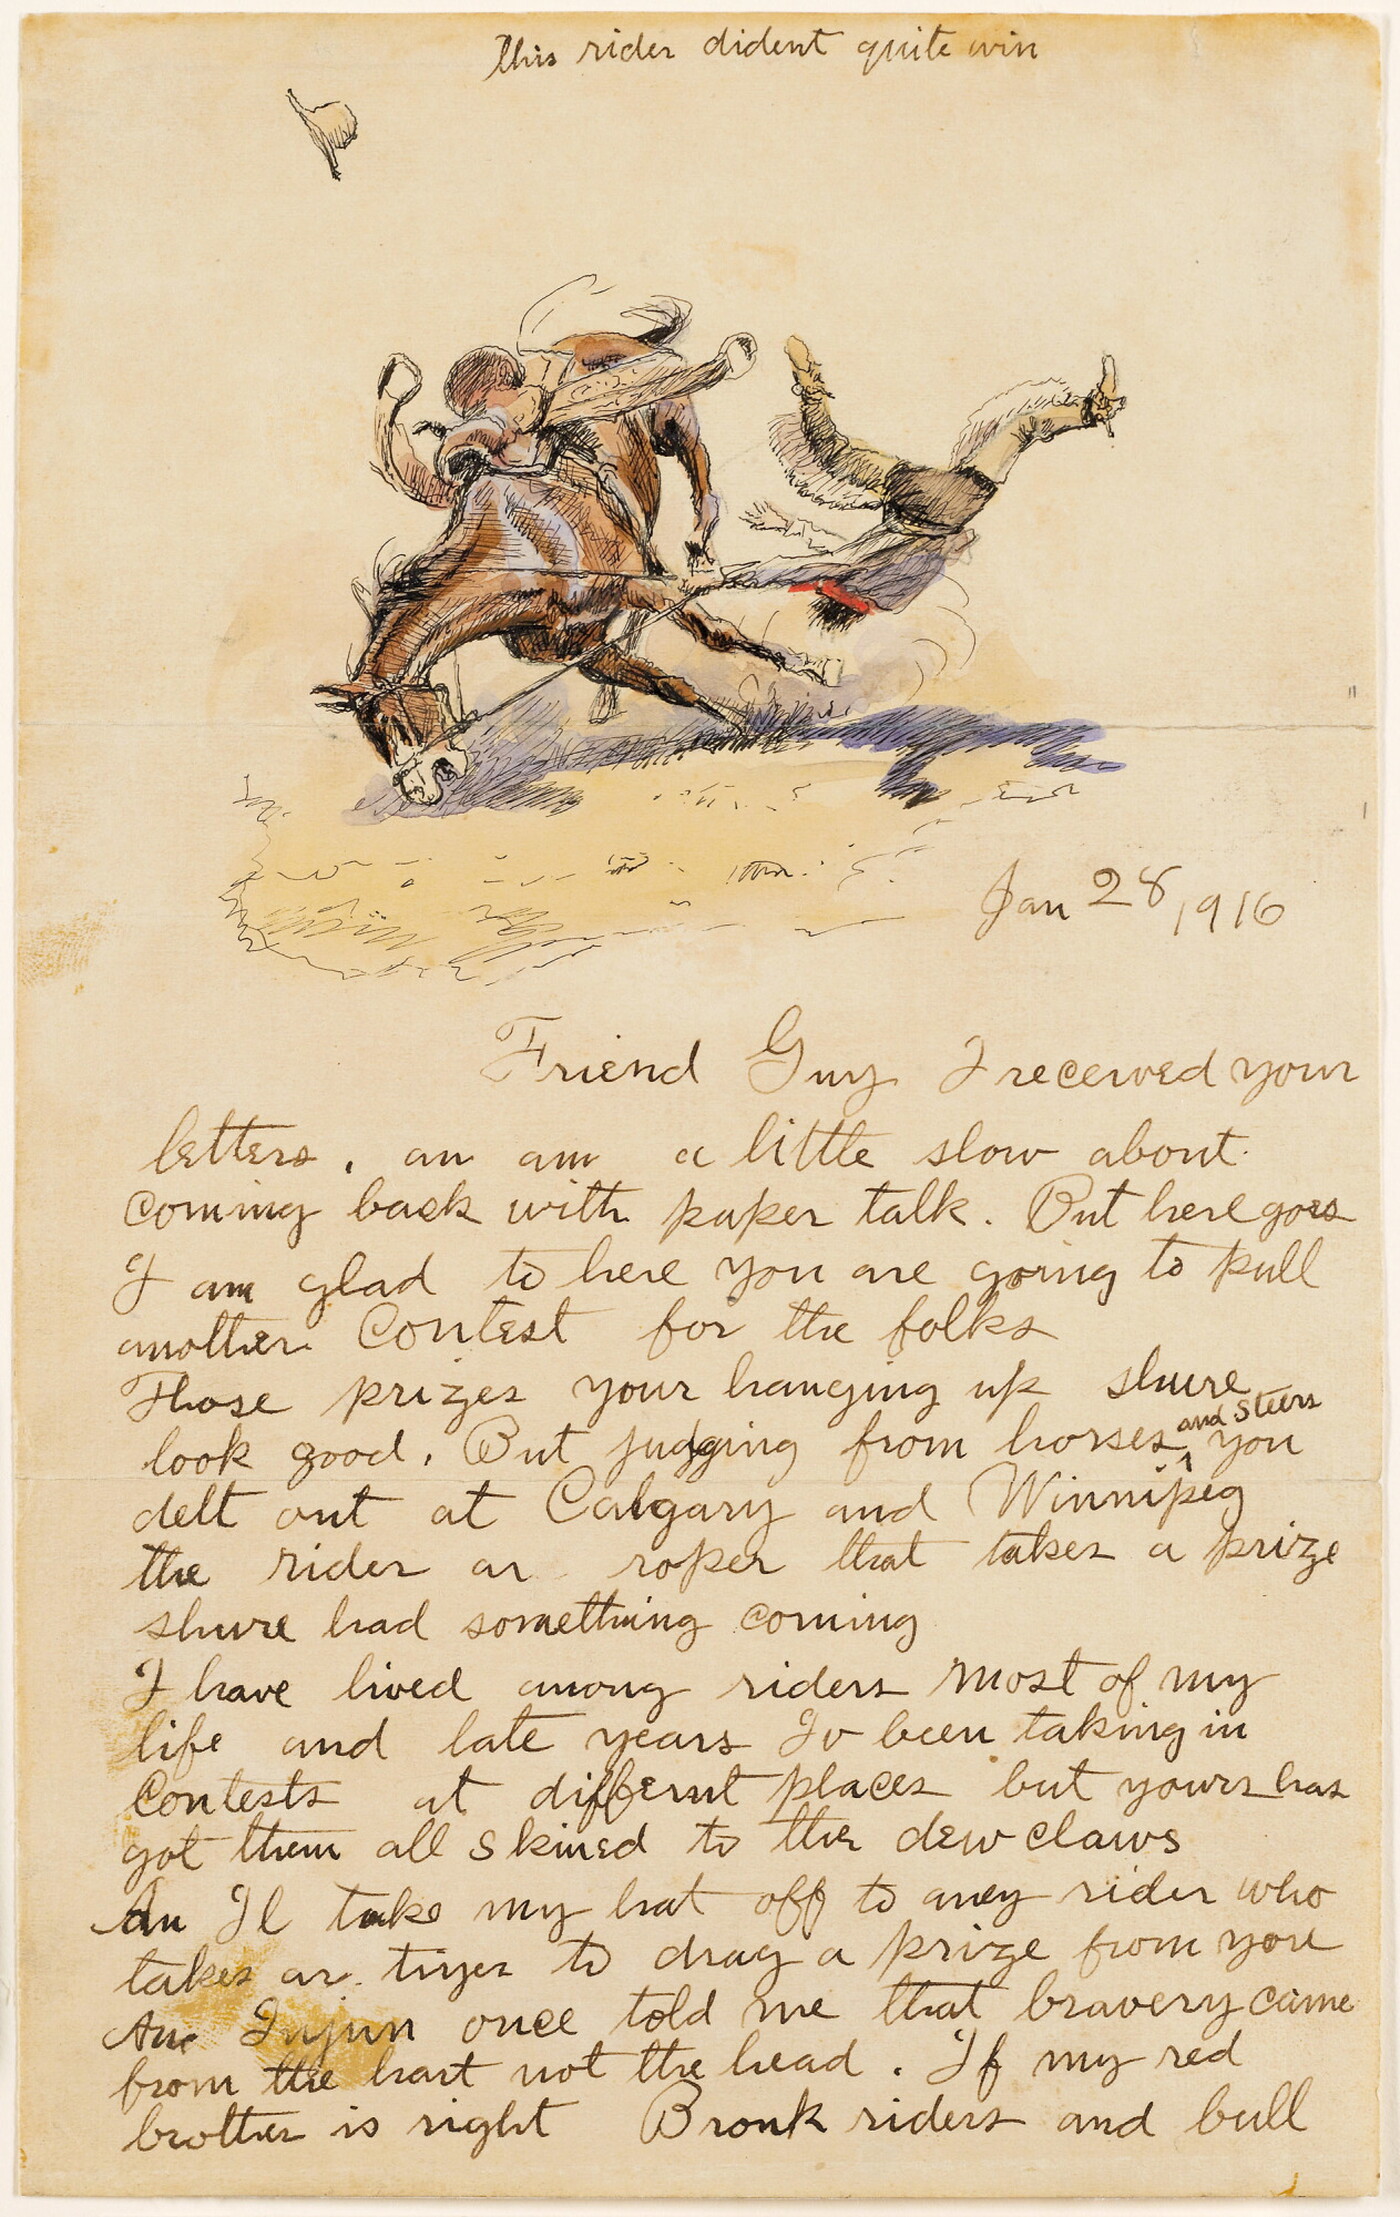 This rider dident quite win
Jan 28, 1916
Friend Guy I received your
letters. an am a little slow about
coming back with paper talk. But here goes
I am glad to here you are going to pull
another Contest for the folks
Those prizes your hanging up shure
look good. But judging from horses and Steers you
delt out at Calgary and Winnipeg
the rider ar roper that takes a prize
shure had something coming
I have lived among riders most of my
life and late years Iv been taking in
Contests at differnt places but yours has
got them all skined to the dew claws
An Il take my hat off to aney rider who
takes ar tryes to drag a prize from you
An Injun once told me that bravery came
from the hart not the head. If my red
brother is right Bronk riders and bull